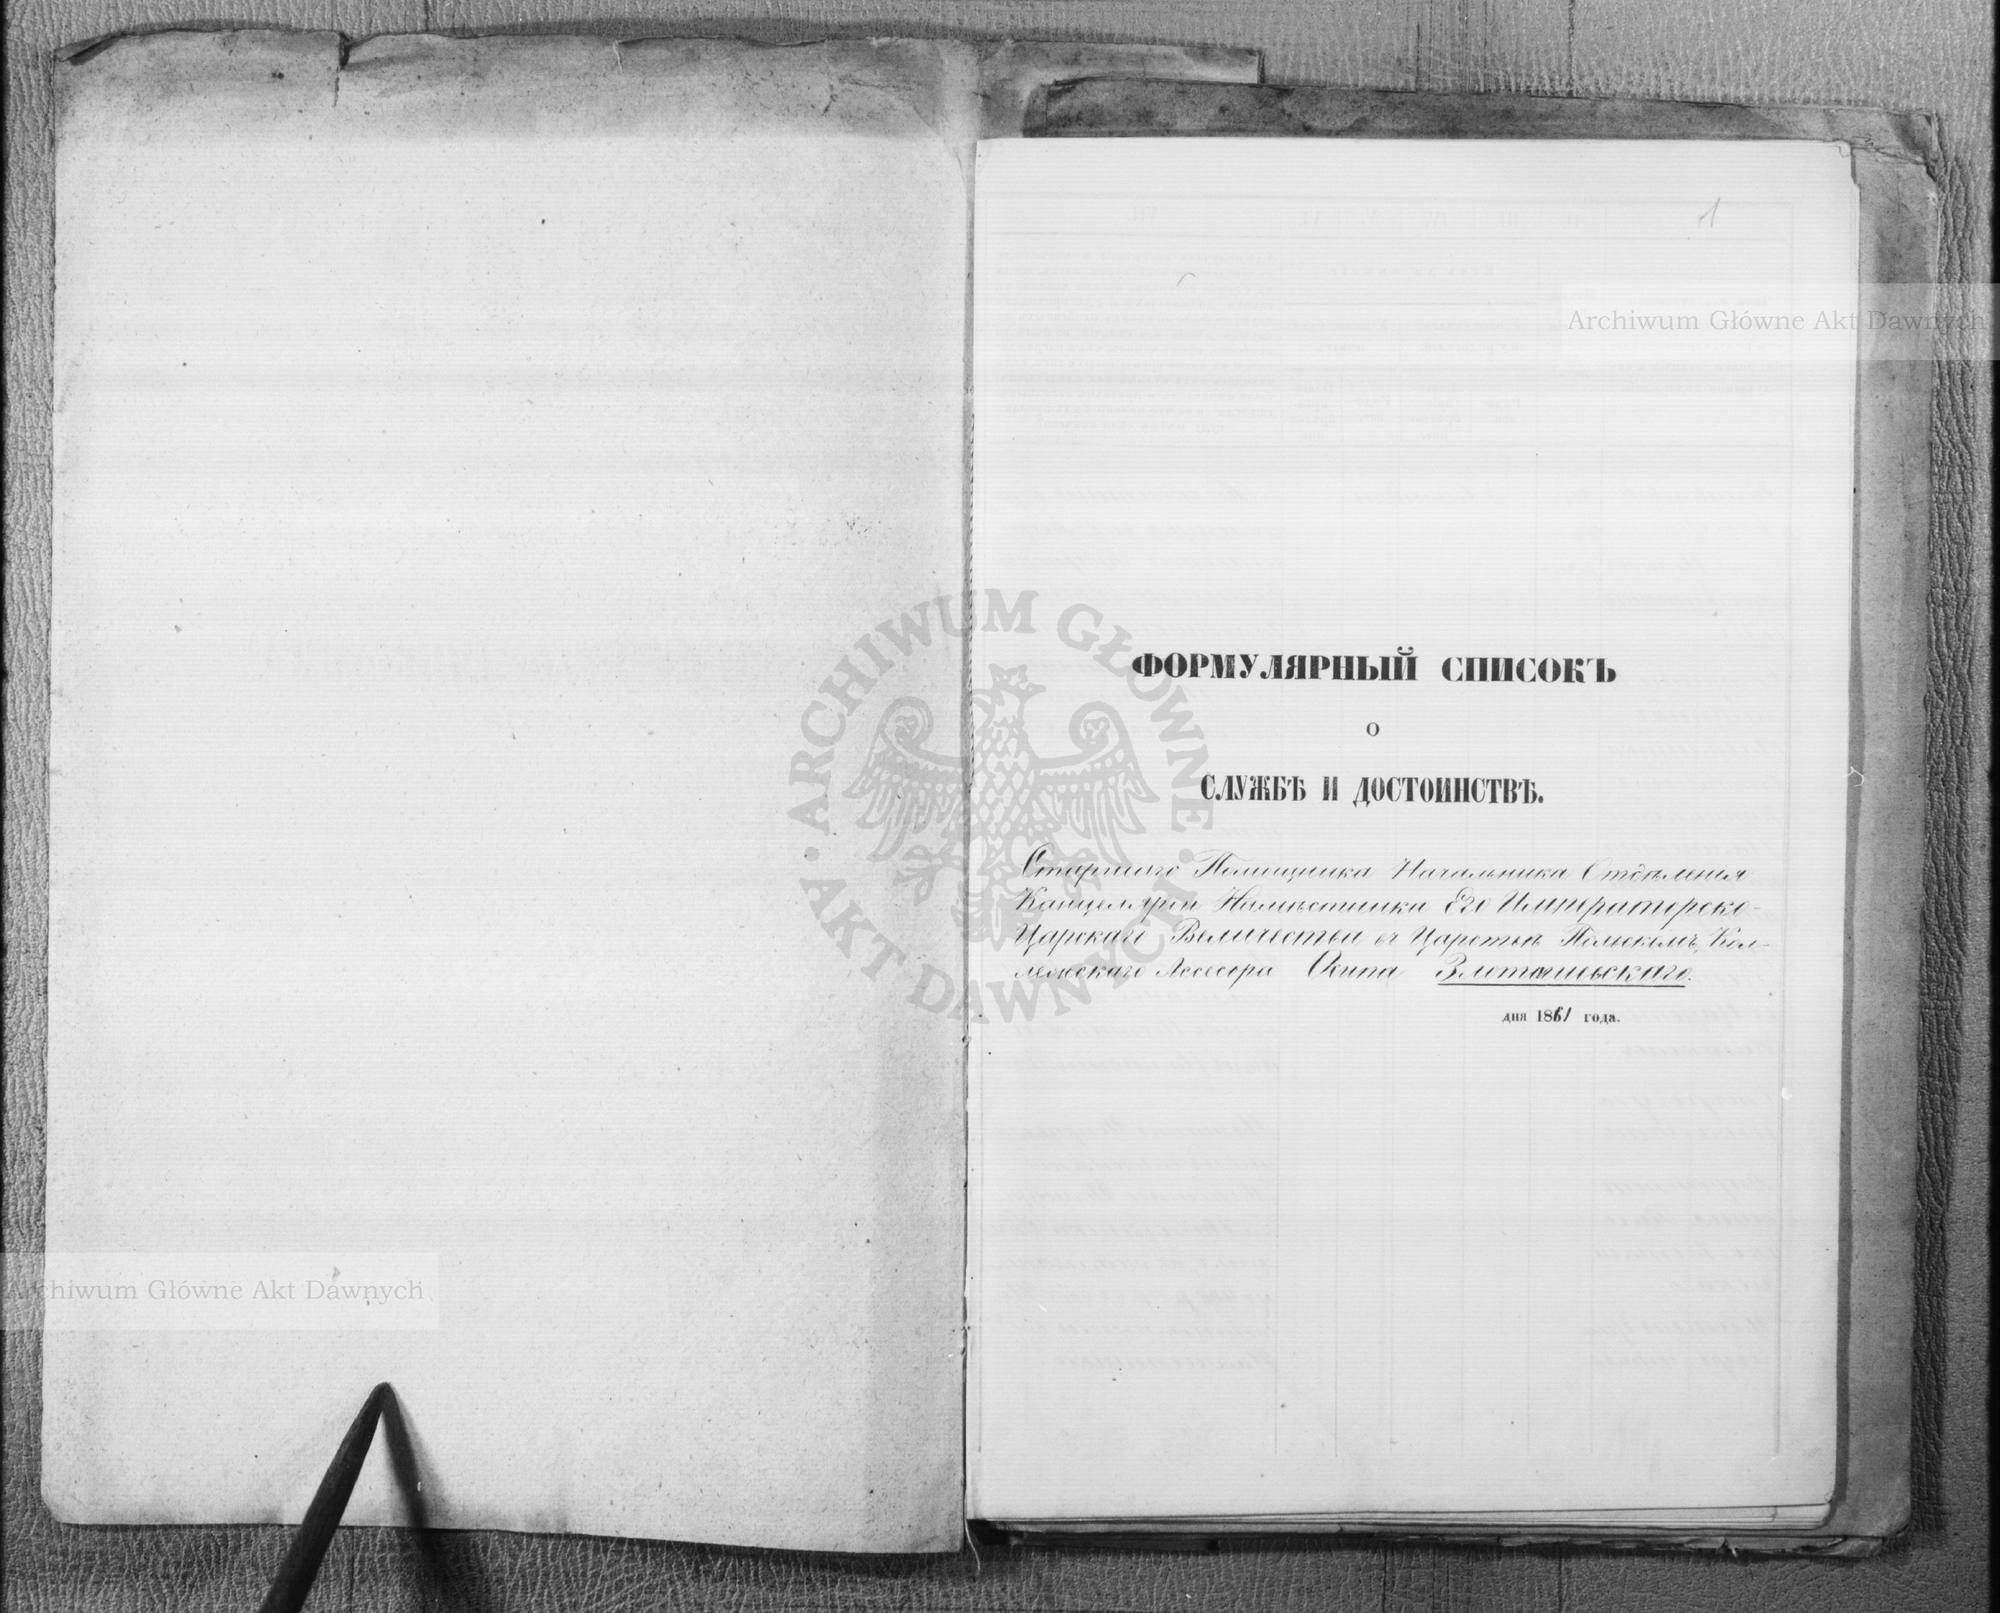 1
Archiwum Główne Akt Dawnych
ARCHIWUM GŁÓWNE AKT DAWNYCH
ФОРМУЛЯРНЫЙ СПИСОКЪ
О
СЛУЖБѢ И ДОСТОИНСТВѢ.
Старшаго Помощника Начальника Отдѣленія
Канцеляріи Намѣстника Его Императорско-
Царскаго Величества въ Царствѣ Польскомъ, Кол-
лежскаго Ассесора Осипа
дня 1861 года.
Archiwum Główne Akt Dawnych